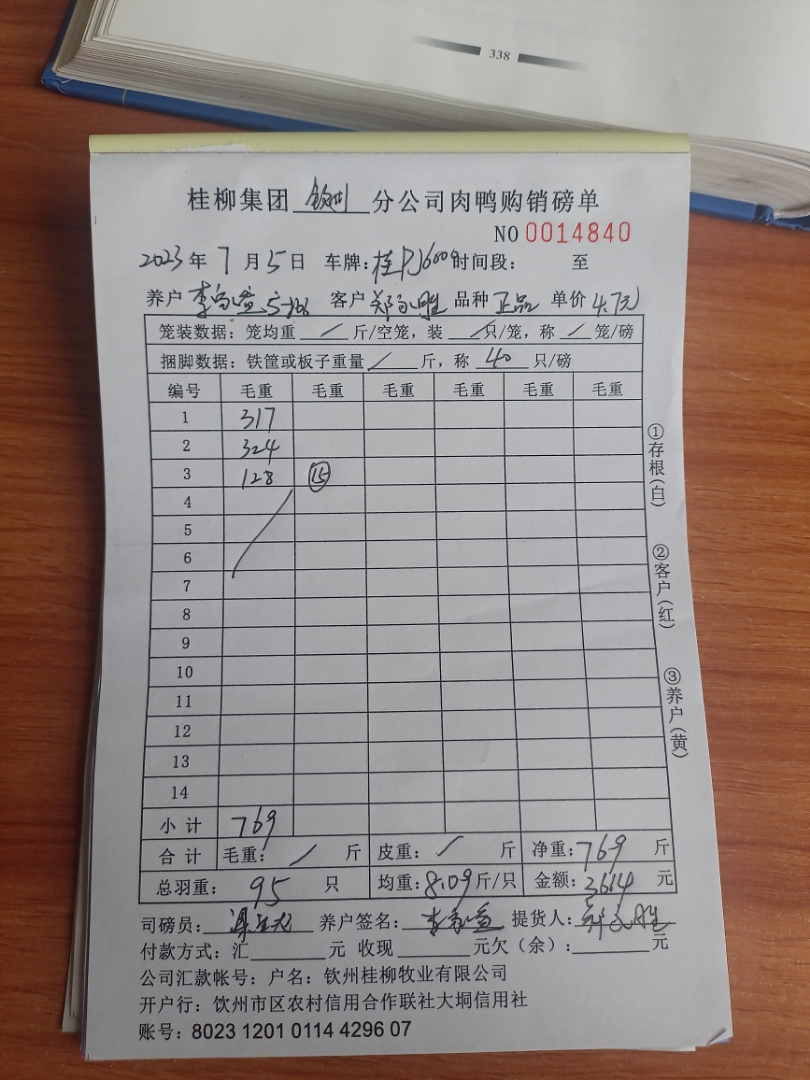 338
桂柳集团 钦州 分公司肉鸭购销磅单
NO 0014840
2023年 7月 5日 车牌: 桂 时间段: 至
养户 李 客户 郑 胜 品种 正品 单价 4.7元
笼装数据: 笼均重 / 斤/空笼, 装 / 只/笼, 称 / 笼/磅
捆脚数据: 铁筐或板子重量 / 斤, 称 40 只/磅
编号 毛重 毛重 毛重 毛重 毛重 毛重
1 317
2 324
3 128 ⑮
4
5
6
7
8
9
10
11
12
13
14
小计 769
合计 毛重: / 斤 皮重: / 斤 净重: 769 斤
总羽重: 95 只 均重: 8.09 斤/只 金额: 3614 元
司磅员: 梁 养户签名: 李 提货人: 郑 胜
付款方式: 汇 元 收现 元欠(余): 元
公司汇款帐号: 户名: 钦州桂柳牧业有限公司
开户行: 钦州市区农村信用合作联社大垌信用社
账号: 8023 1201 0114 4296 07
①存根(白)
②客户(红)
③养户(黄)